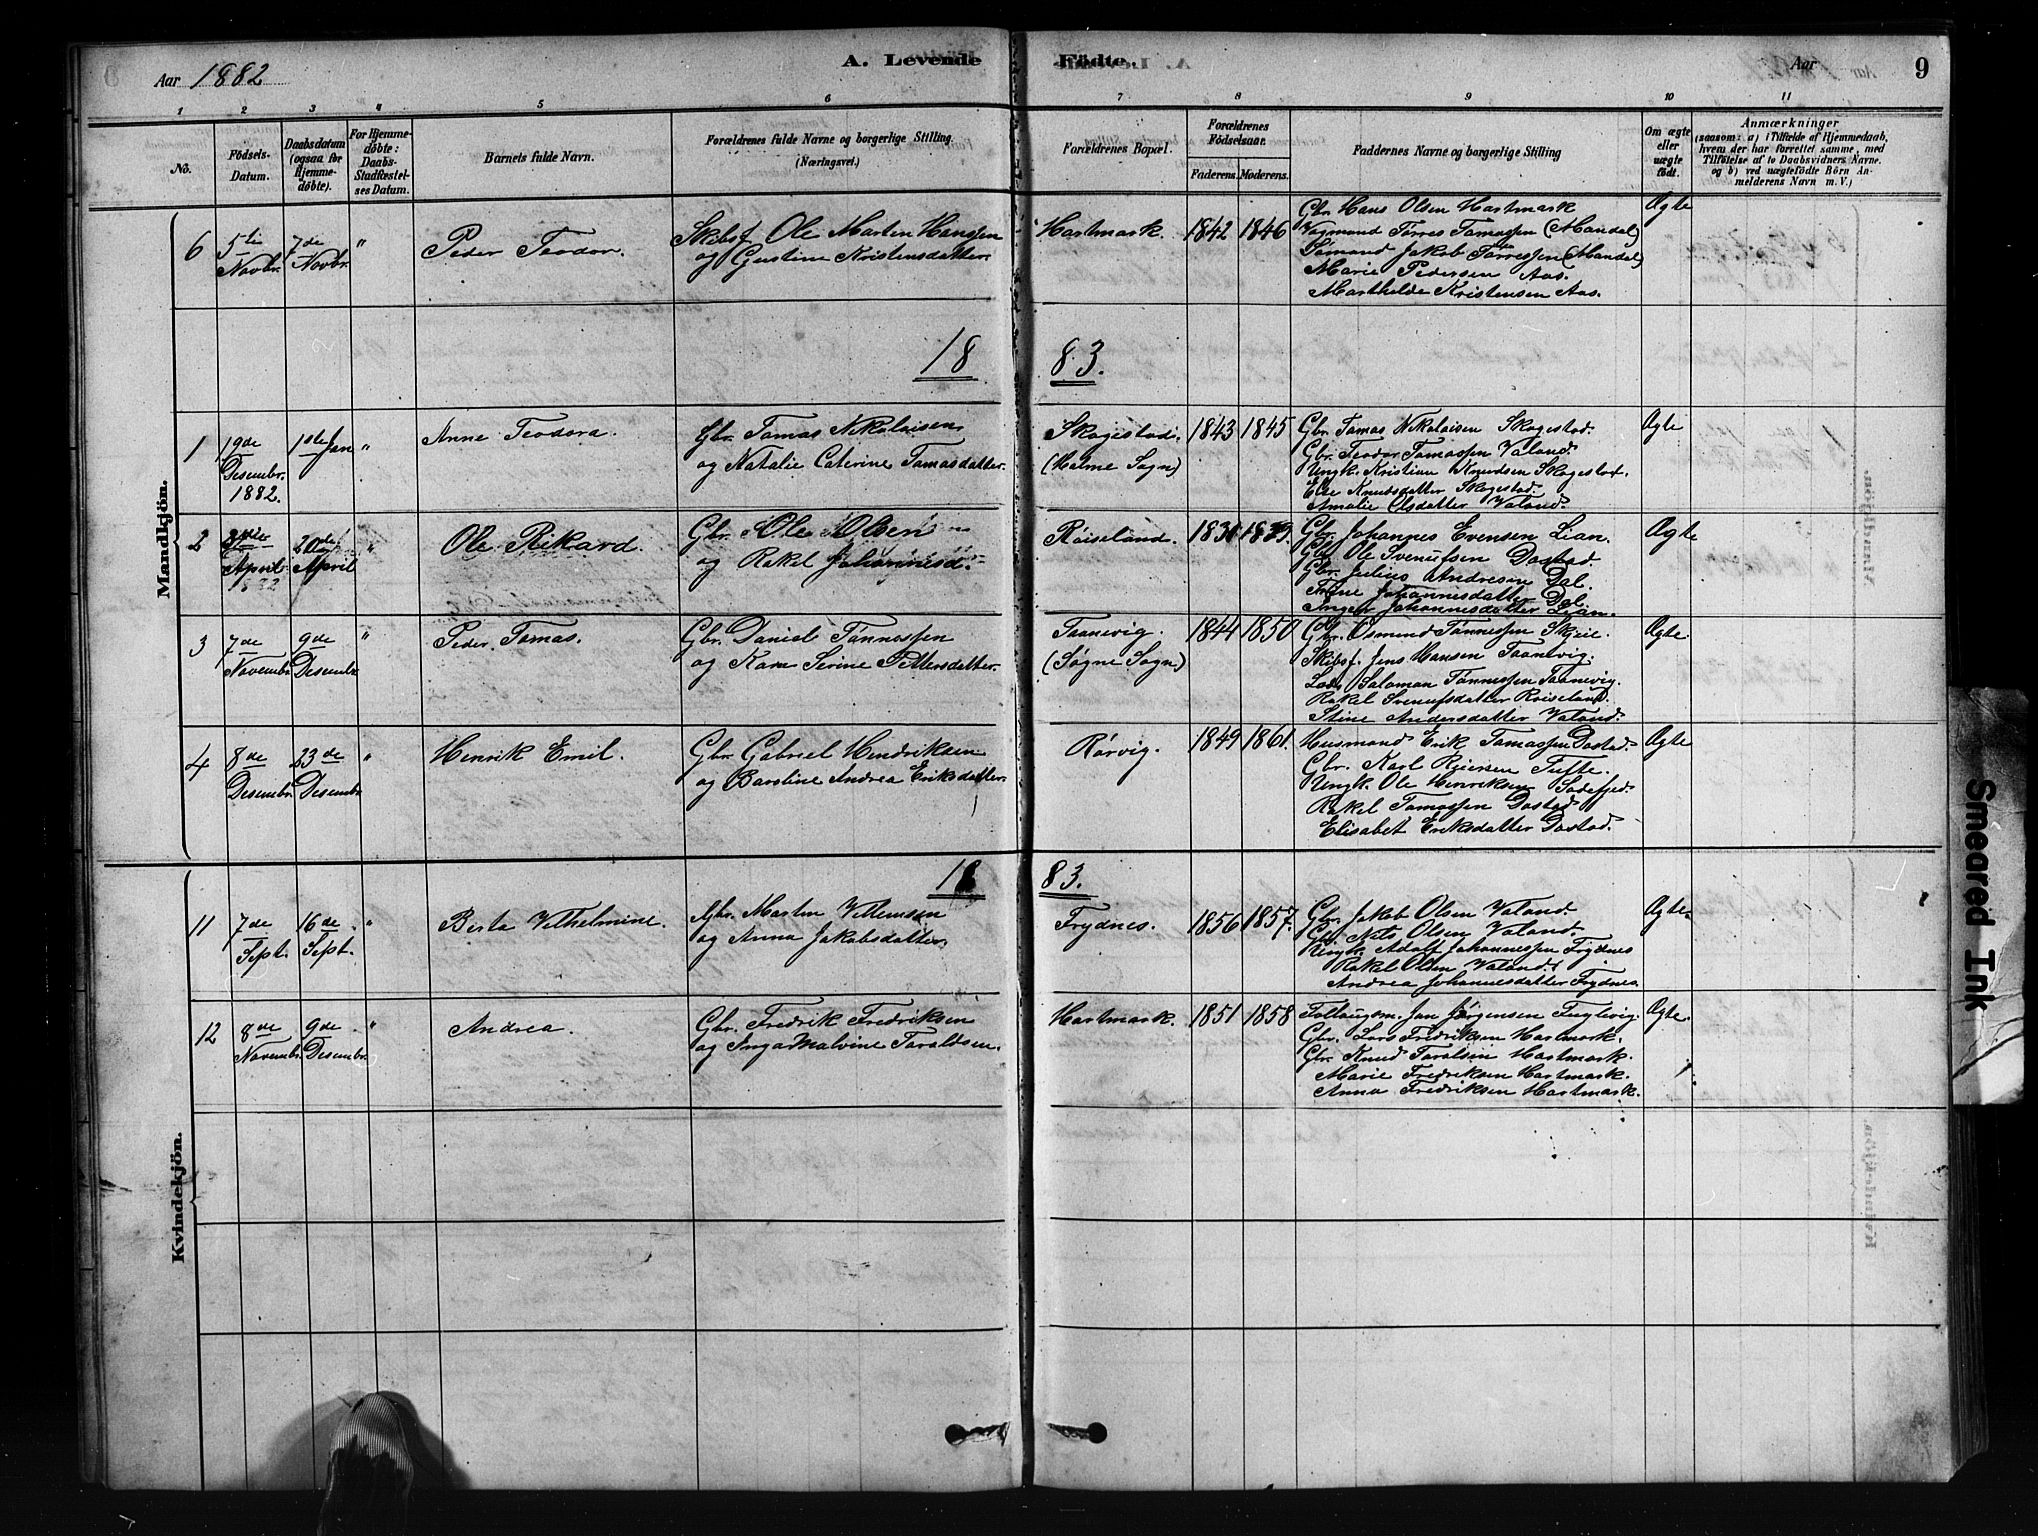 Aar 1882
A. Levende
Fødte.
Aar
9
1 2 3 4 5 6 7 8 9 10 11
No.
Fødsels-
Datum.
Daabsdatum
(ogsaa for
Hjemme-
døbte).
For Hjemme-
døbte:
Daabs-
Stadfæstel-
ses Datum.
Barnets fulde Navn.
Forældrenes fulde Navne og borgerlige Stilling.
(Næringsvei.)
Forældrenes Bopæl.
Forældrenes
Fødselsaar.
Faderens. Moderens.
Faddernes Navne og borgerlige Stilling
Om ægte
eller
uægte
født.
Anmærkninger
(saasom: a) i Tilfælde af Hjemmedaab,
hvem der har forrettet samme, med
Tilføielse af to Daabsvidners Navne.
og b) ved uægtefødte Börn An-
melderens Navn m. V.)
Mandkjön.
6
5te
Novbr.
7de
Novbr.
"
Peder Teodor.
Skibsf. Ole Martin Hanssen
og Gustine Kristensdatter.
Hartmark.
1842 1846
Gbr. Hans Olsen Hartmark
Vagmand Tørres Tamassen (Mandal)
Sømand Jakob Tørressen (Mandal)
Marie Pedersen Aas.
Marthilde Kristensen Aas.
Ægte
18
83.
1
19de
Desembr.
1882.
1ste Jan
"
Anne Teodora.
Gbr. Tamas Nikolaisen
og Natalie Caterine Tamasdatter.
Skogestad.
(Halme Sogn)
1843 1845
Gbr. Tamas Nikolaisen Skogestad.
Gbr. Teodor Tamassen Valand.
Ungk. Kristian Knudsen Skogestad.
Else Knudsdatter Skogestad.
Amalie Olsdatter Valand.
Ægte
2
April
20de
April
"
Ole Rikard.
Gbr. Ole Olsen
og Rakel Johannesd.
Røiseland.
Gbr. Johannes Evensen Lian.
Gbr. Ole Svenufsen Dastad.
Gbr. Julius Andresen Dal
Trine Johannesdatter Dal.
Inger Johannesdatter Lian.
Ægte
3
7de
Novembr.
9de
Desembr.
"
Peder Tamas.
Gbr. Daniel Tønnessen
og Karen Serine Pettersdatter.
Taanevig.
(Søgne Sogn)
1844 1850
Gbr. Osmund Tønnessen Skjeie.
Skibsf. Jens Hansen Taanevig.
Lods Salomon Tønnessen Taanevig.
Rakel Svenufsdatter Roiseland.
Stine Andersdatter Valand.
Ægte.
4
8de
Desembr.
23de
Desembr.
"
Henrik Emil.
Gbr. Gabriel Hendriksen
og Baroline Andrea Eriksdatter.
Rørvig.
1849 1861.
Husmand Erik Tamassen Dastad.
Gbr. Karl Reiersen Tufte.
Ungk. Ole Henriksen Sodefjed.
Rakel Tamassen Dastad
Elisabet Eriksdatter Dastad.
Ægte
18
83.
Kvindekjön.
11
7de
Sept.
16de
Sept.
"
Berta Vilhelmine.
Gbr. Martin Villumsen
og Anna Jakobsdatter.
Frydnes.
1856 1857.
Gbr. Jakob Olsen Valand.
Gbr. Nils Olsen Valand.
Ungk. Adolf Johannessen Frydnes
Rakel Olsen Valand.
Andrea Johannesdatter Frydnes.
Ægte.
12
8de
Novembr.
9de
Desembr.
"
Andrea.
Gbr. Fredrik Fredriksen
og Inga Malvine Taraldsen.
Hartmark.
1851 1858
Toldougm. Jan Jørgensen Fuglevig.
Gbr. Lars Fredriksen Hartmark.
Gbr. Knud Taralsen Hartmark.
Marie Fredriksen Hartmark.
Anna Fredriksen Hartmark.
Ægte.
Smeared Ink